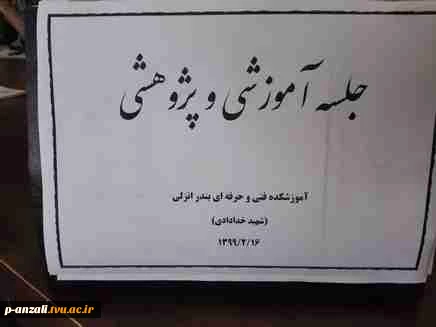 جلسه آموزشی و پژوهشی
آموزشکده فنی و حرفه ای بندر انزلی
(شهید خدادادی)
۱۳۹۹/۲/۱۶
p-anzali.tvu.ac.ir